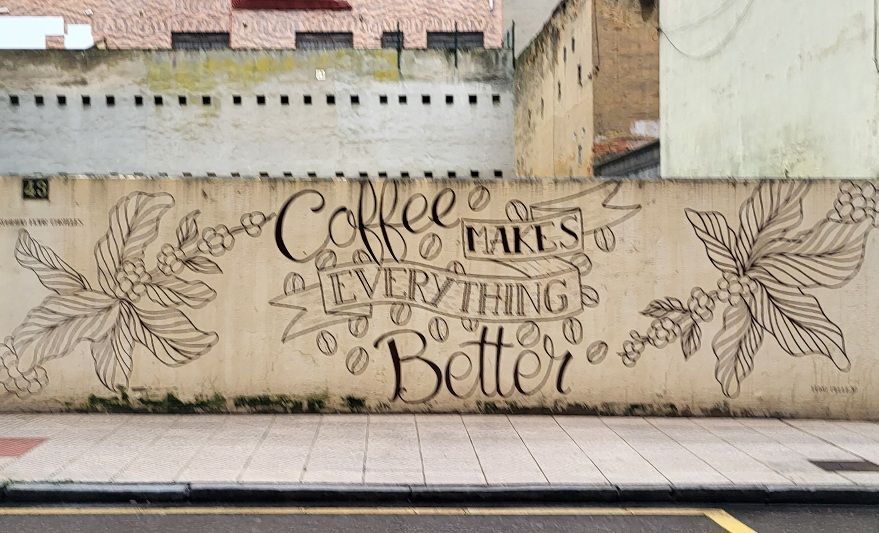 48
Coffee
MAKES
EVERYTHING
Better